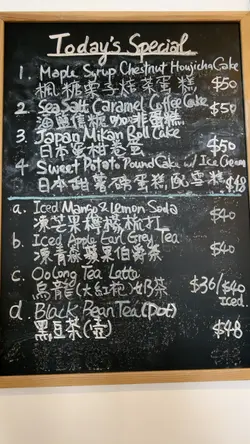 Today's Special
1. Maple Syrup Chestnut Houjicha Cake
楓糖栗子焙茶蛋糕 $50
2. Sea Salt Caramel Coffee Cake
海鹽焦糖咖啡蛋糕 $50
3. Japan Mikan Roll Cake
日本蜜柑卷蛋 $50
4. Sweet Potato Pound Cake w/ Ice Cream
日本甜薯磅蛋糕配雪糕 $48
a. Iced Mango & Lemon Soda
凍芒果檸檬梳打 $40
b. Iced Apple Earl Grey Tea
凍青蘋果伯爵茶 $40
c. Oolong Tea Latte
烏龍(大紅袍)奶茶 $36/$40
Iced
d. Black Bean Tea (Pot)
黑豆茶(壺) $48